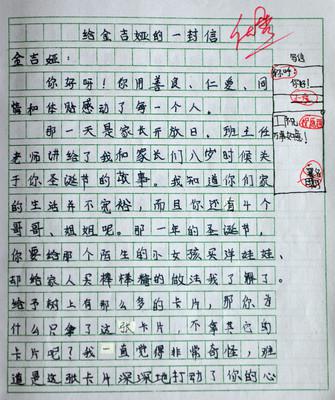 给金吉娅的一封信
金吉娅：
你好呀！你用善良、仁爱、同
情和体贴感动了每一个人。
那一天是家长开放日，班主任
老师讲给了我和家长们八岁时候关
于你圣诞节的故事。我知道你们家
的生活并不宽裕，而且你还有4个
哥哥、姐姐吧。那一年的圣诞节，
你要给那个陌生的小女孩买洋娃娃、
却给家人买棒棒糖的做法我了解了。
给予树上有那么多的卡片，那你为
什么只拿了这张卡片，不拿其它的
卡片呢？我一直觉得非常奇怪，难
道是这张卡片深深地打动了你的心
写信
称呼：
你好！
正文
祝愿语
署名
日期